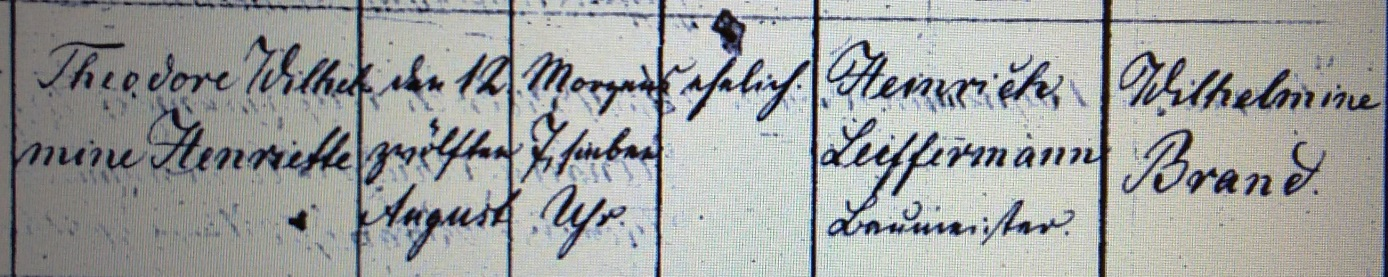 Theodore Wilhel
mine Henriette
den 12
zwölften
August
Morgens
7, sieben
Uhr.
ehelich.
Heinrich
Leiffermann
Baumeister.
Wilhelmine
Brand.